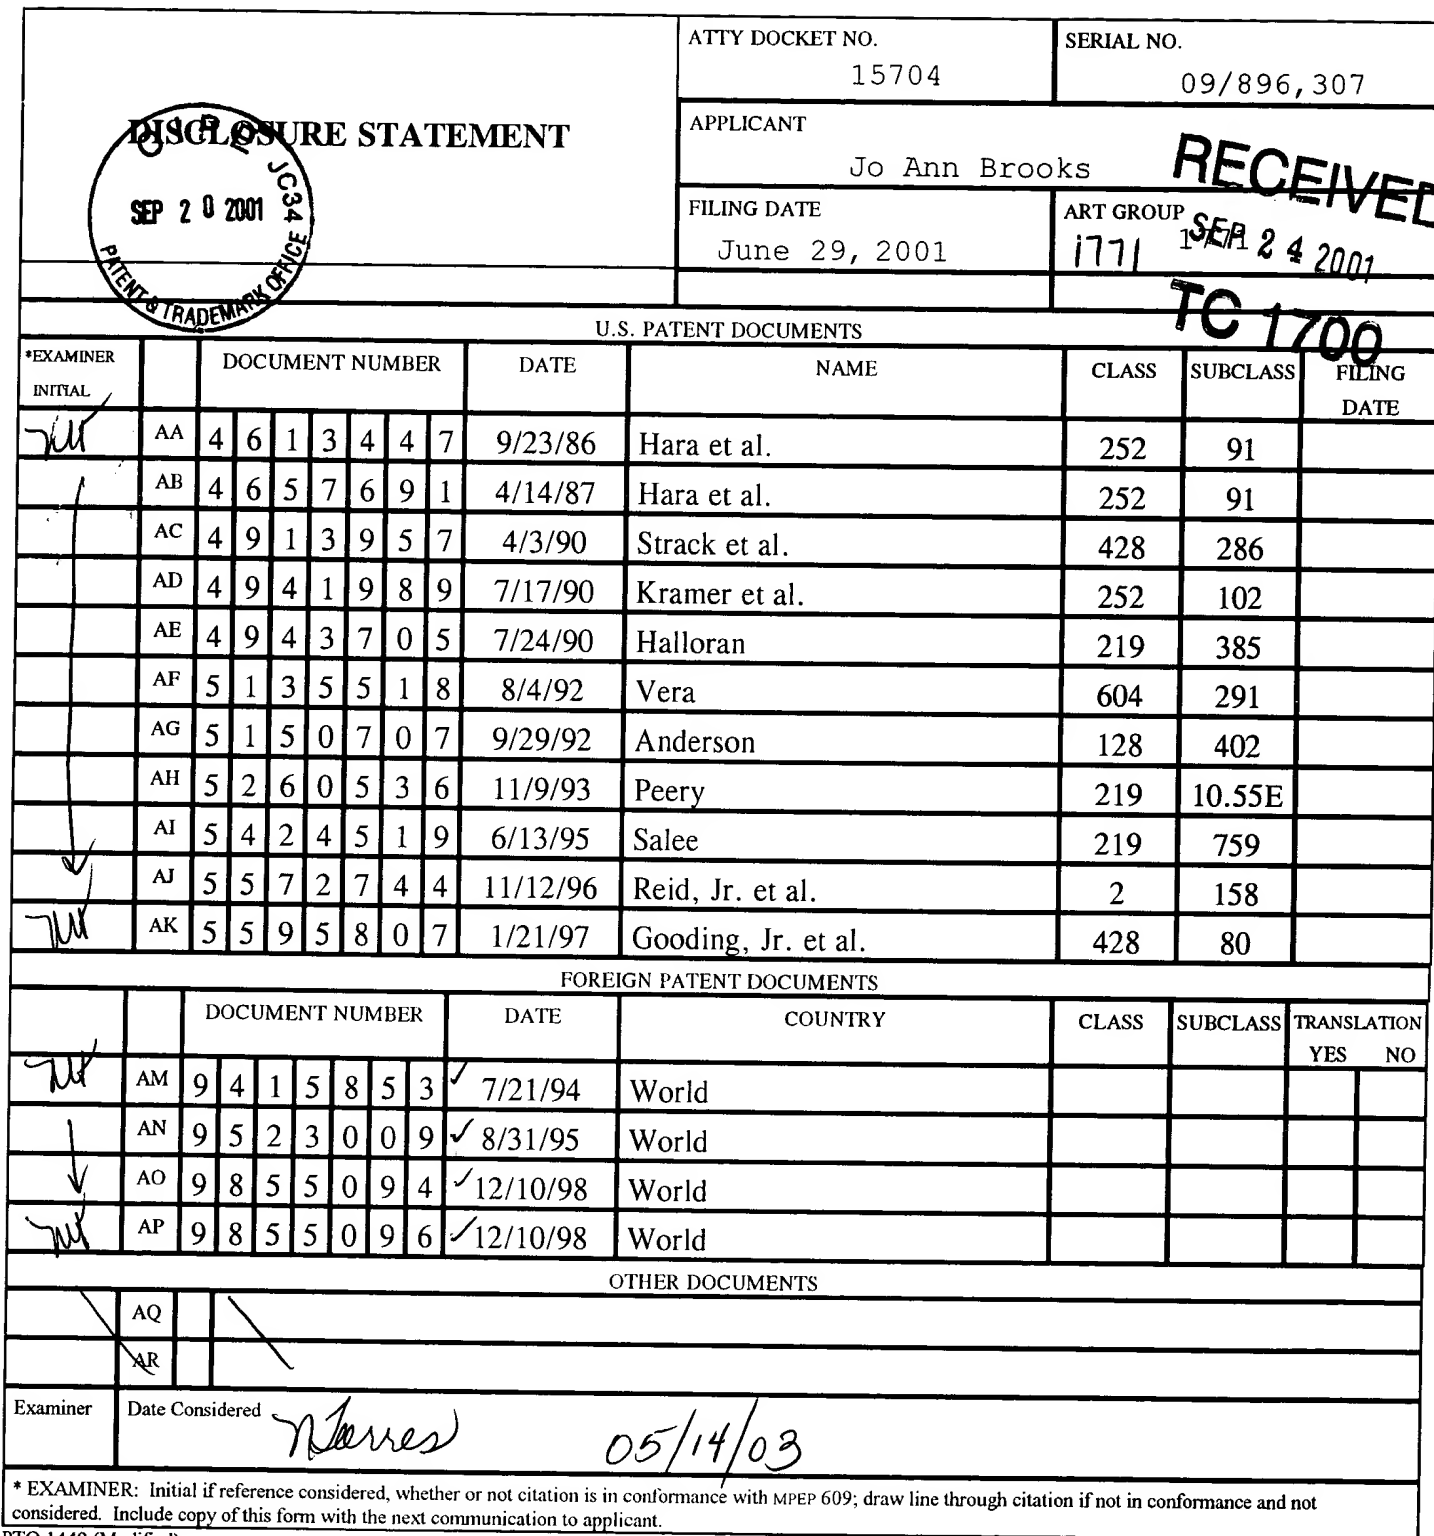 ATTY DOCKET NO.
15704
SERIAL NO.
09/896,307
DISCLOSURE STATEMENT
O I P E JC34
SEP 20 2001
PATENT & TRADEMARK OFFICE
APPLICANT
Jo Ann Brooks
RECEIVED
FILING DATE
June 29, 2001
ART GROUP
1771
SEP 24 2001
TC 1700
U.S. PATENT DOCUMENTS
*EXAMINER INITIAL DOCUMENT NUMBER DATE NAME CLASS SUBCLASS FILING DATE
AA 4613447 9/23/86 Hara et al. 252 91
AB 4657691 4/14/87 Hara et al. 252 91
AC 4913957 4/3/90 Strack et al. 428 286
AD 4941989 7/17/90 Kramer et al. 252 102
AE 4943705 7/24/90 Halloran 219 385
AF 5135518 8/4/92 Vera 604 291
AG 5150707 9/29/92 Anderson 128 402
AH 5260536 11/9/93 Peery 219 10.55E
AI 5424519 6/13/95 Salee 219 759
AJ 5572744 11/12/96 Reid, Jr. et al. 2 158
AK 5595807 1/21/97 Gooding, Jr. et al. 428 80
FOREIGN PATENT DOCUMENTS
DOCUMENT NUMBER DATE COUNTRY CLASS SUBCLASS TRANSLATION YES NO
AM 9415853 ✓ 7/21/94 World
AN 9523009 ✓ 8/31/95 World
AO 9855094 ✓ 12/10/98 World
AP 9855096 ✓ 12/10/98 World
OTHER DOCUMENTS
AQ
AR
Examiner Date Considered NTorres 05/14/03
* EXAMINER: Initial if reference considered, whether or not citation is in conformance with MPEP 609; draw line through citation if not in conformance and not
considered. Include copy of this form with the next communication to applicant.